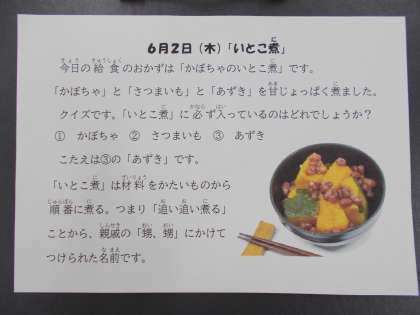 6月2日(木)「いとこ煮」
今日の給食のおかずは「かぼちゃのいとこ煮」です。
「かぼちゃ」と「さつまいも」と「あずき」を甘じょっぱく煮ました。
クイズです。「いとこ煮」に必ず入っているのはどれでしょうか?
① かぼちゃ ② さつまいも ③ あずき
こたえは③の「あずき」です。
「いとこ煮」は材料をかたいものから
順番に煮る。つまり「追い追い煮る」
ことから、親戚の「甥、甥」にかけて
つけられた名前です。